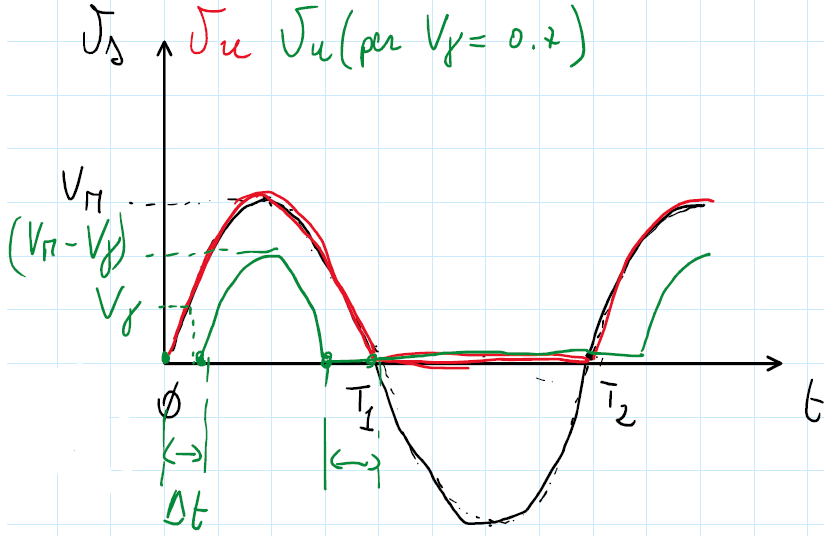 Vs Vu Vu (per Vγ = 0.7)
VM
(VM - Vγ)
Vγ
0 T1 T2 t
Δt